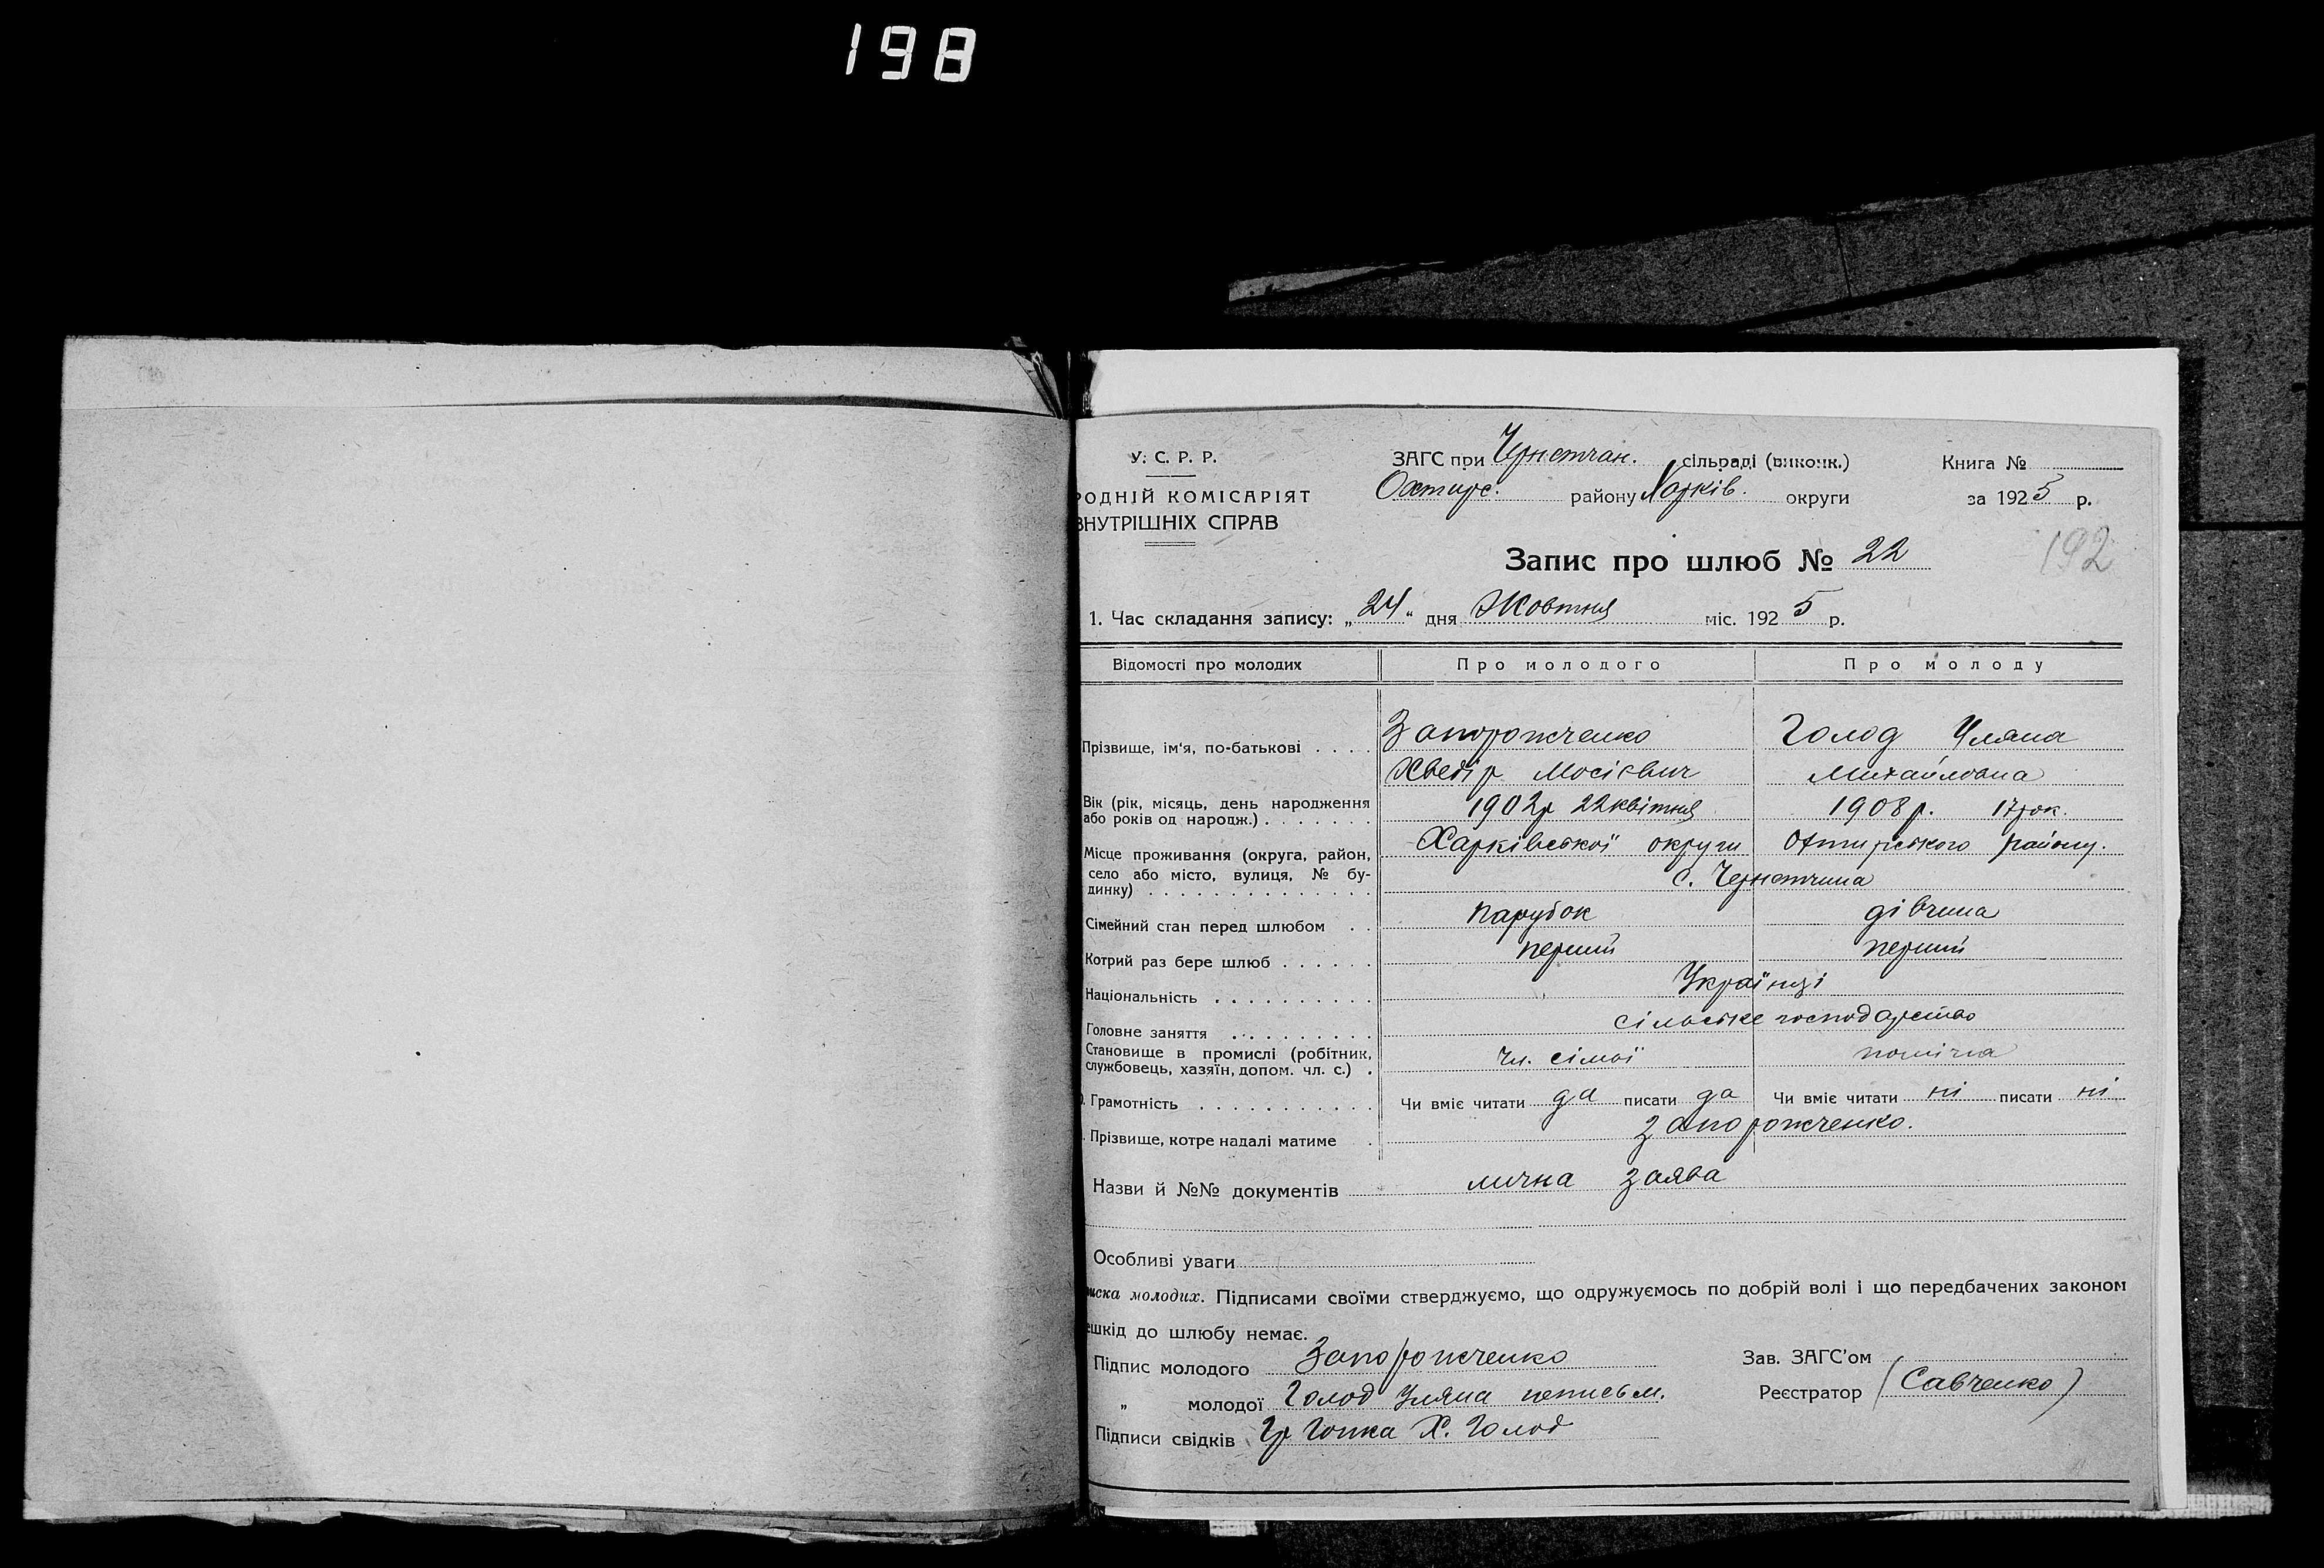 198
У. С. Р. Р.
РОДНІЙ КОМІСАРІЯТ
ВНУТРІШНІХ СПРАВ
ЗАГС при Чернетчан. сільраді (виконк.)
Охтирс. району Харків. округи
Книга №
за 1925 р.
192
Запис про шлюб № 22
1. Час складання запису: „24“ дня Жовтня міс. 1925 р.
Відомості про молодих Про молодого Про молоду
Прізвище, ім'я, по-батькові . . . . Запорожченко Голод Уляна
Хведір Мосієвич Михайловна
Вік (рік, місяць, день народження 1902р 22 квітня 1908 р. 17 рок.
або років од народж.) . . . . . . .
Місце проживання (округа, район, Харківської округи Охтирського району.
село або місто, вулиця, № бу- с. Чернетчина
динку) . . . . . . . . . . . . . .
Сімейний стан перед шлюбом . . парубок дівчина
Котрий раз бере шлюб . . . . . . перший перший
Національність . . . . . . . . . . Українці
Головне заняття . . . . . . . . . сільське господарство
Становище в промислі (робітник, чл. сімьї поміčна
службовець, хазяїн, допом. чл. с.) .
. Грамотність . . . . . . . . . . . Чи вміє читати да писати да Чи вміє читати ні писати ні
. Прізвище, котре надалі матиме . Запорожченко.
Назви й №№ документів лична заява
Особливі уваги
иска молодих. Підписами своїми стверджуємо, що одружуємось по добрій волі і що передбачених законом
ешкід до шлюбу немає.
Підпис молодого Запорожченко
„ молодої Голод Уляна неписьм.
Підписи свідків Гр Гопка Х. Голод
Зав. ЗАГС'ом
Реєстратор (Савченко)